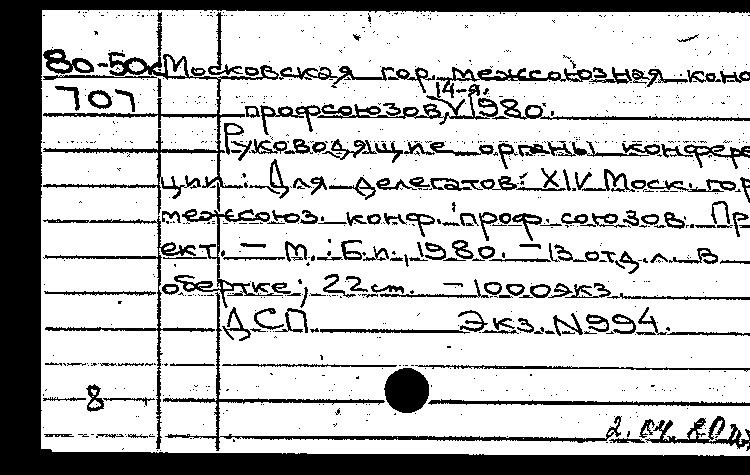 80-50к Московская гор. межсоюзная конф
707 14-я.
профсоюзов, 1980.
Руководящие органы конферен
ции: Для делегатов: XIV Моск. гор
межсоюз. конф. проф. союзов. Пр
ект. — М.: Б.и., 1980. — 13 отд. л. в
обертке; 22 cm. — 1000экз.
ДСП Экз. N994.
8
2.04.80